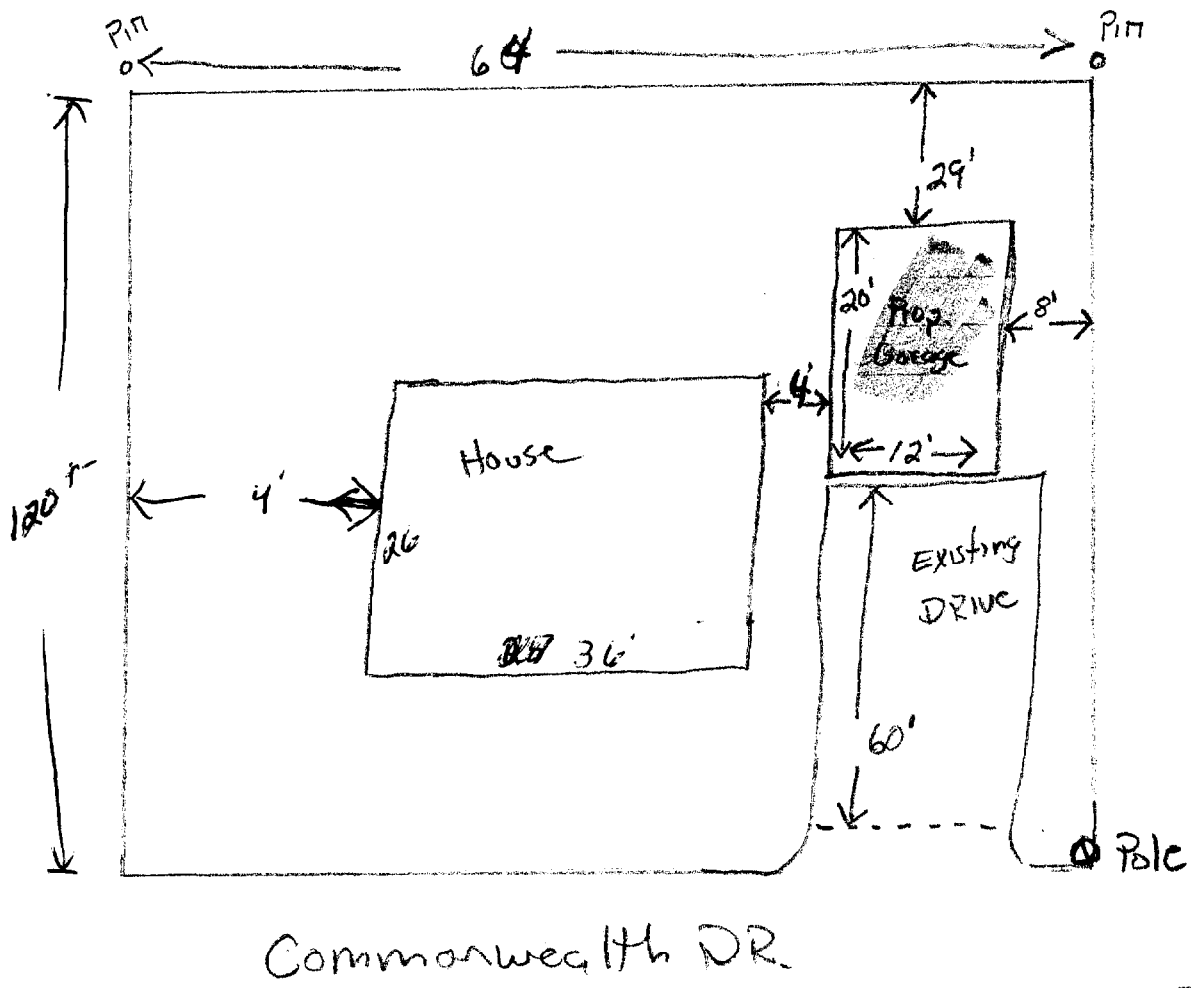 Pin
Pin
64
29'
20'
Prop.
Garage
8'
4'
12'
House
4'
26
36'
120
Existing
DRIVE
60'
Pole
Commonwealth DR.